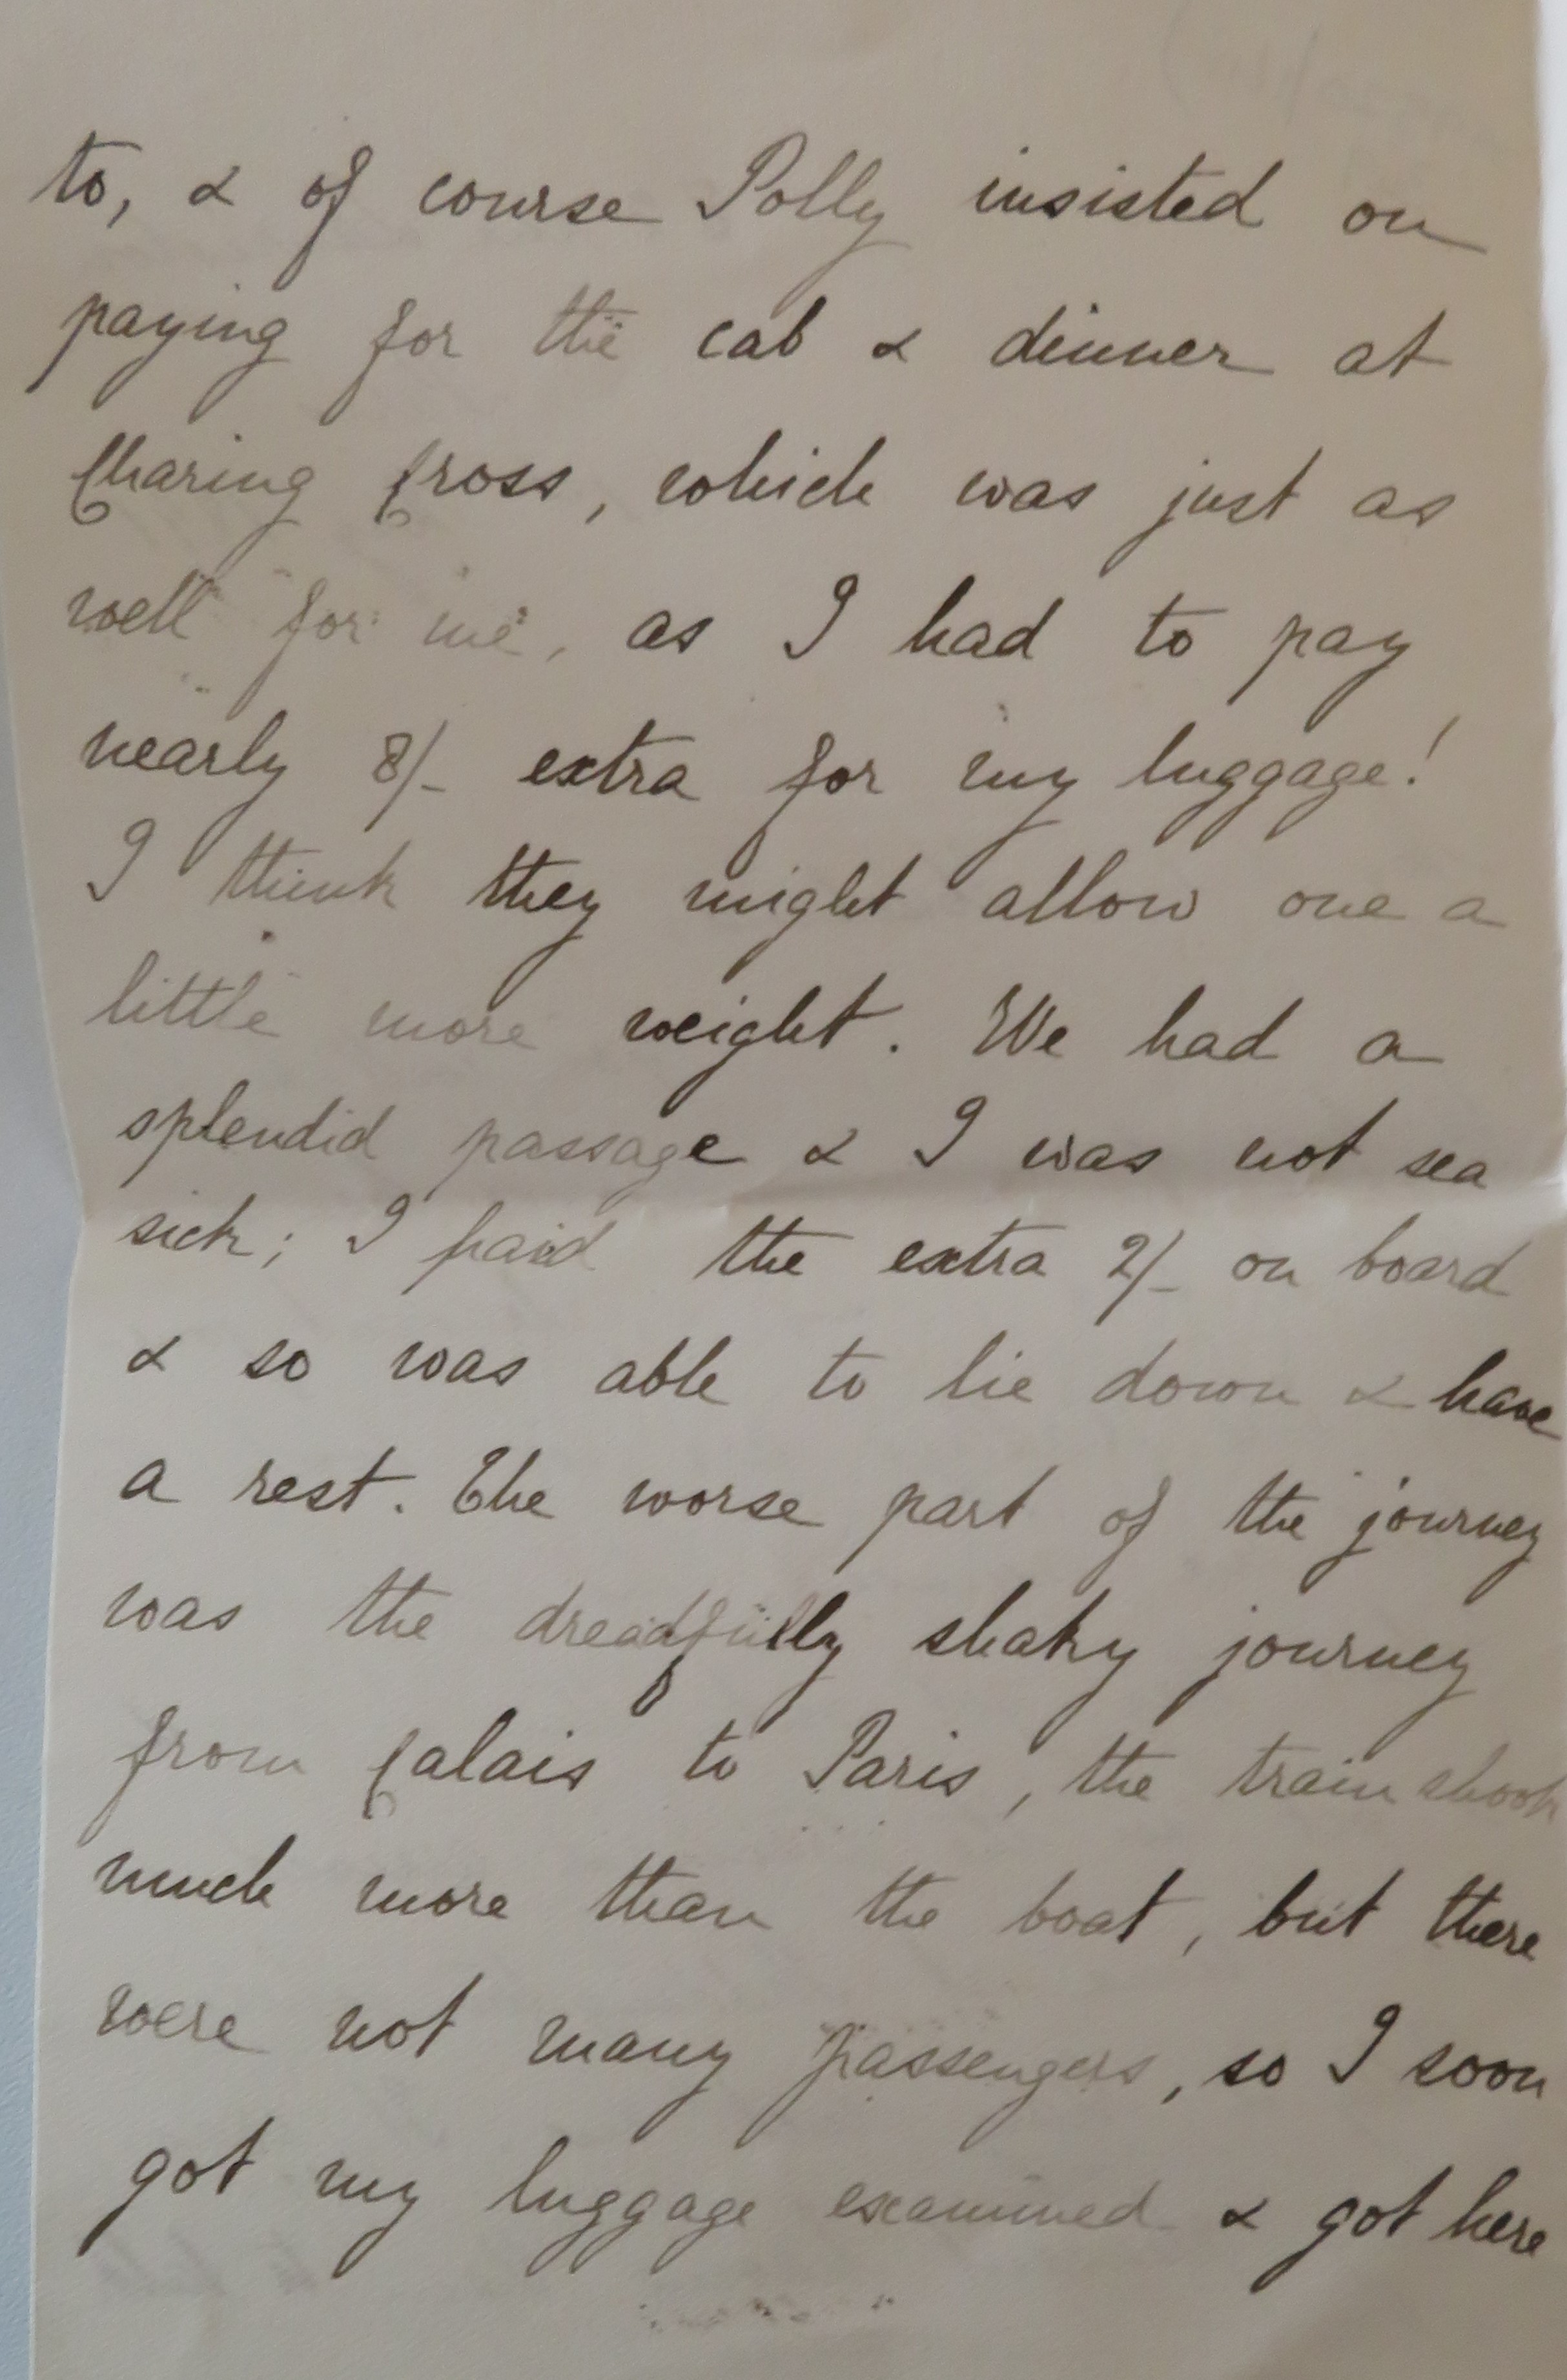 to, & of course Polly insisted on
paying for the cab & dinner at
Charing Cross, which was just as
well for me, as I had to pay
nearly 8/- extra for my luggage!
I think they might allow one a
little more weight. We had a
splendid passage & I was not sea
sick; I paid the extra 2/- on board
& so was able to lie down & have
a rest. The worse part of the journey
was the dreadfully shaky journey
from Calais to Paris, the train shook
much more than the boat, but there
were not many passengers, so I soon
got my luggage examined & got here